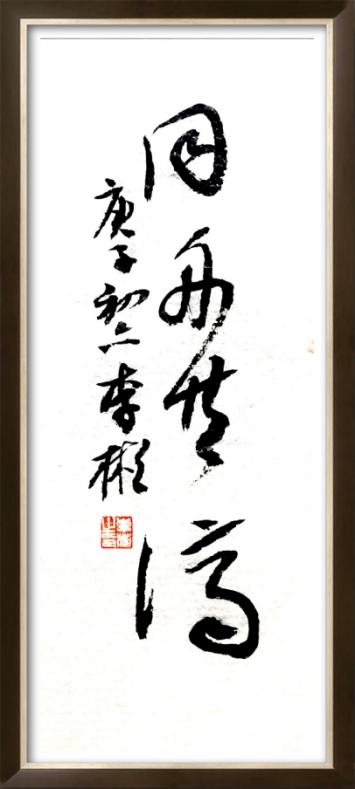 同舟共济
庚子初六李彬